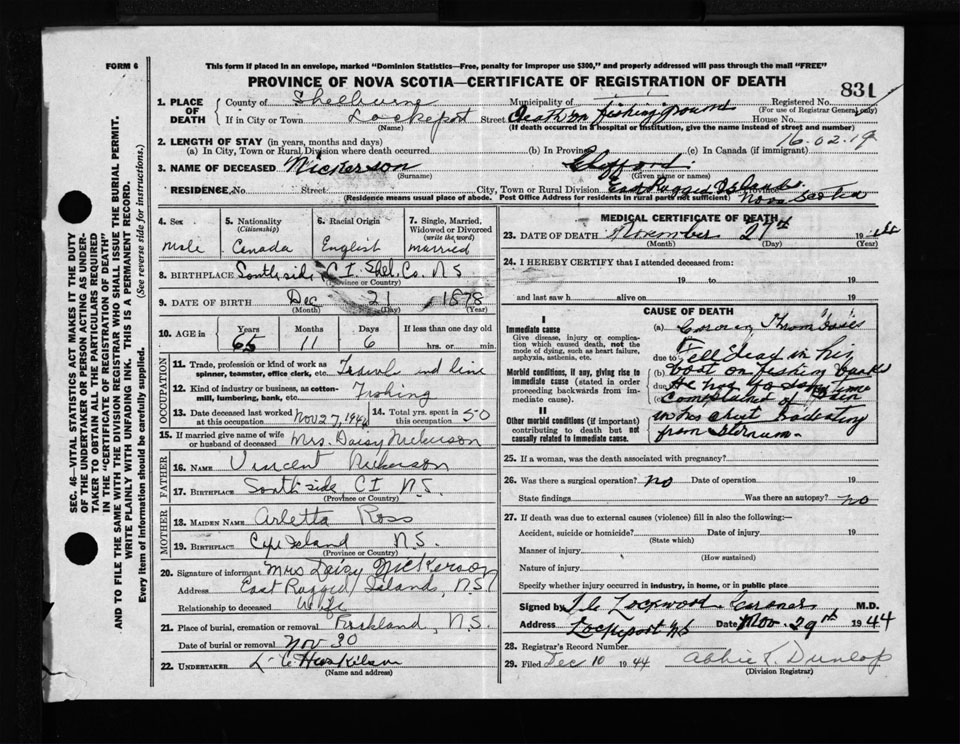 FORM 6
This form if placed in an envelope, marked "Dominion Statistics—Free, penalty for improper use $300," and properly addressed will pass through the mail "FREE"
PROVINCE OF NOVA SCOTIA—CERTIFICATE OF REGISTRATION OF DEATH
831
1. PLACE OF DEATH
County of Shelburne Municipality of Registered No.
(For use of Registrar General only)
If in City or Town Lockeport Street Death on fishing ground House No.
(Name) (If death occurred in a hospital or institution, give the name instead of street and number)
16.02.19
2. LENGTH OF STAY (in years, months and days)
(a) In City, Town or Rural Division where death occurred (b) In Province (c) In Canada (if immigrant)
3. NAME OF DECEASED Nickerson Clifford
(Surname) (Given name or names)
RESIDENCE, No. Street City, Town or Rural Division East Ragged Islands Province
(Residence means usual place of abode. Post Office Address for residents in rural parts not sufficient) Nova Scotia
4. Sex
Male
5. Nationality
(Citizenship)
Canada
6. Racial Origin
English
7. Single, Married, Widowed or Divorced
(write the word)
Married
8. BIRTHPLACE South side C.I. Shel. Co. N.S.
(Province or Country)
9. DATE OF BIRTH Dec 21 1878
(Month) (Day) (Year)
10. AGE in
Years Months Days If less than one day old
65 11 6 hrs. or min.
OCCUPATION
11. Trade, profession or kind of work as spinner, teamster, office clerk, etc. Trawl and line
12. Kind of industry or business, as cotton-mill, lumbering, bank, etc. Fishing
13. Date deceased last worked at this occupation Nov 27, 1944
14. Total yrs. spent in this occupation 50
15. If married give name of wife or husband of deceased Mrs. Daisy Nickerson
FATHER
16. NAME Vincent Nickerson
17. BIRTHPLACE South side C I N.S.
(Province or Country)
MOTHER
18. MAIDEN NAME Arletta Ross
19. BIRTHPLACE Cape Island N.S.
(Province or Country)
20. Signature of informant Mrs Daisy Nickerson
Address East Ragged Island, N.S.
Relationship to deceased Wife
21. Place of burial, cremation or removal Rockland, N.S.
Date of burial or removal Nov 30
22. UNDERTAKER L. C Huskilson
(Name and address)
MEDICAL CERTIFICATE OF DEATH
23. DATE OF DEATH November 27th 19 44
(Month) (Day) (Year)
24. I HEREBY CERTIFY that I attended deceased from:
19 to 19
and last saw h alive on 19
CAUSE OF DEATH
I
Immediate cause
Give disease, injury or complication which caused death, not the mode of dying, such as heart failure, asphyxia, asthenia, etc.
(a) Coronary Thrombosis
due to Fell dead in his
Morbid conditions, if any, giving rise to immediate cause (stated in order proceeding backwards from immediate cause).
(b) boat on fishing banks
due to
(c) complained of pain
II
Other morbid conditions (if important) contributing to death but not causally related to immediate cause.
in his chest radiating
from sternum.
25. If a woman, was the death associated with pregnancy?
26. Was there a surgical operation? No Date of operation 19
State findings Was there an autopsy? No
27. If death was due to external causes (violence) fill in also the following:—
Accident, suicide or homicide? Date of injury 19
(State which)
Manner of injury
(How sustained)
Nature of injury
Specify whether injury occurred in industry, in home, or in public place
Signed by Lockwood Coroner M.D.
Address Lockeport NS Date Nov. 29th 1944
28. Registrar's Record Number
29. Filed Dec 10 1944 Abbie L. Dunlop
(Division Registrar)
SEC. 46—VITAL STATISTICS ACT MAKES IT THE DUTY
OF THE UNDERTAKER OR PERSON ACTING AS UNDER-
TAKER TO OBTAIN ALL THE PARTICULARS REQUIRED
IN THE "CERTIFICATE OF REGISTRATION OF DEATH"
AND TO FILE THE SAME WITH THE DIVISION REGISTRAR WHO SHALL ISSUE THE BURIAL PERMIT.
WRITE PLAINLY WITH UNFADING INK. THIS IS A PERMANENT RECORD.
Every item of information should be carefully supplied. (See reverse side for instructions.)